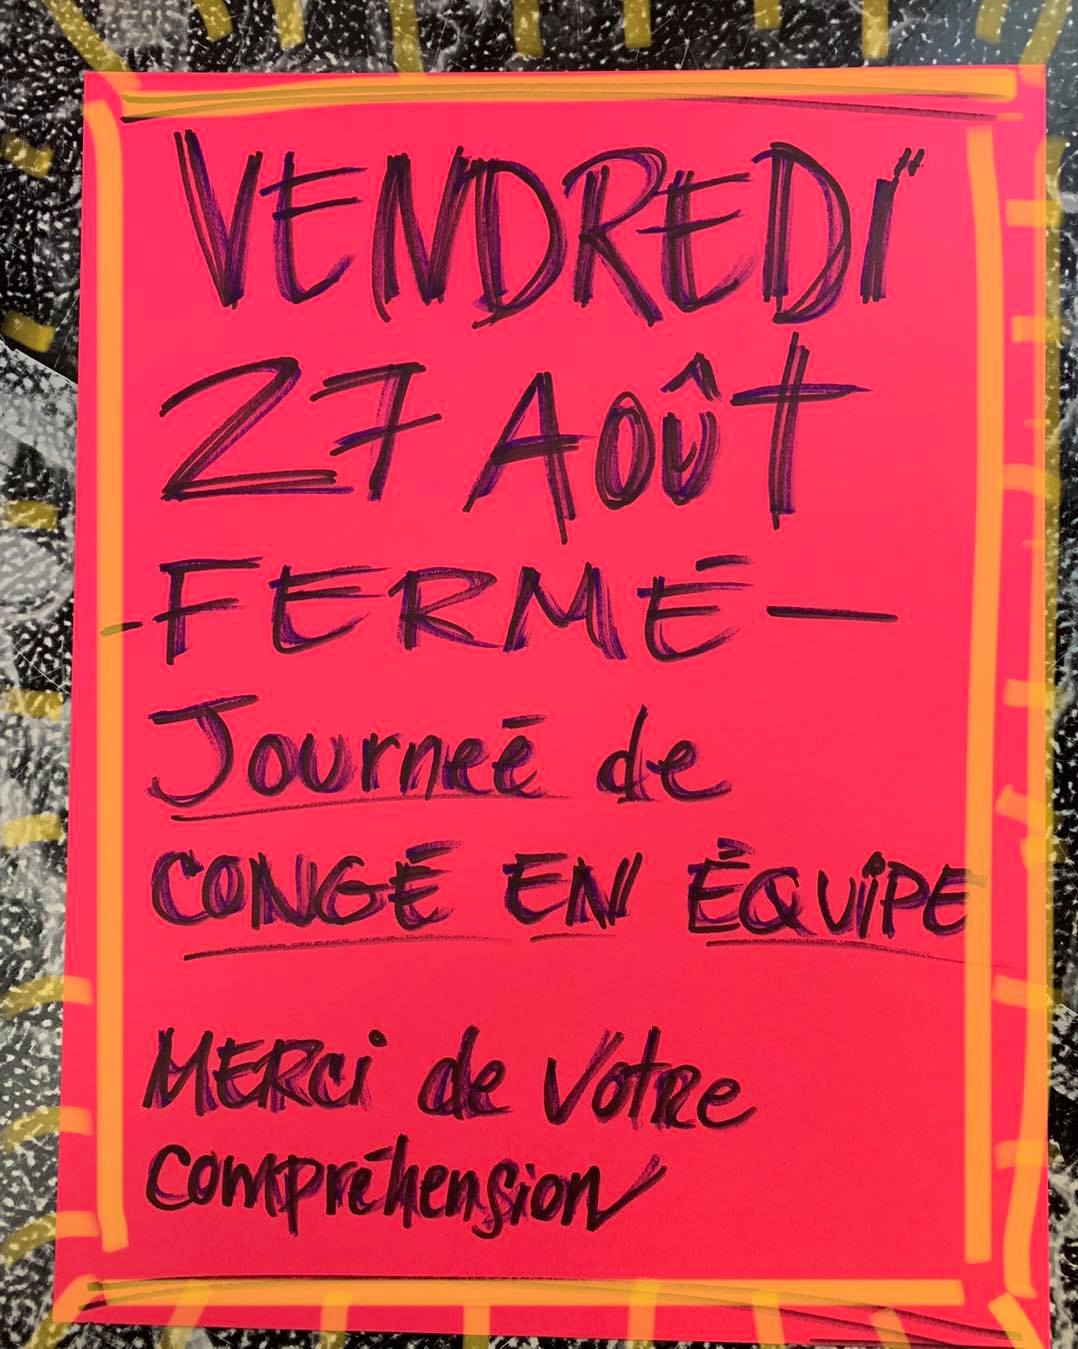 VENDREDI
27 Août
- FERMÉ -
Journeé de
CONGÉ EN ÉQUIPE
MERCi de Votre
compréhension